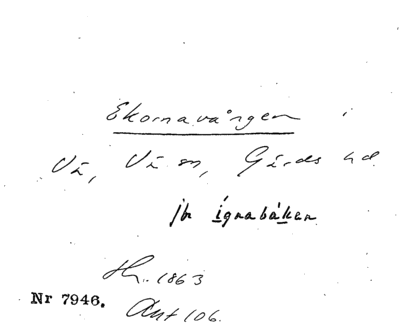 Ekornavången i
Vä, Vä sn, Gärds hd
jfr ígnabáken
Hr. 1863
Nr 7946.
Ant 106.